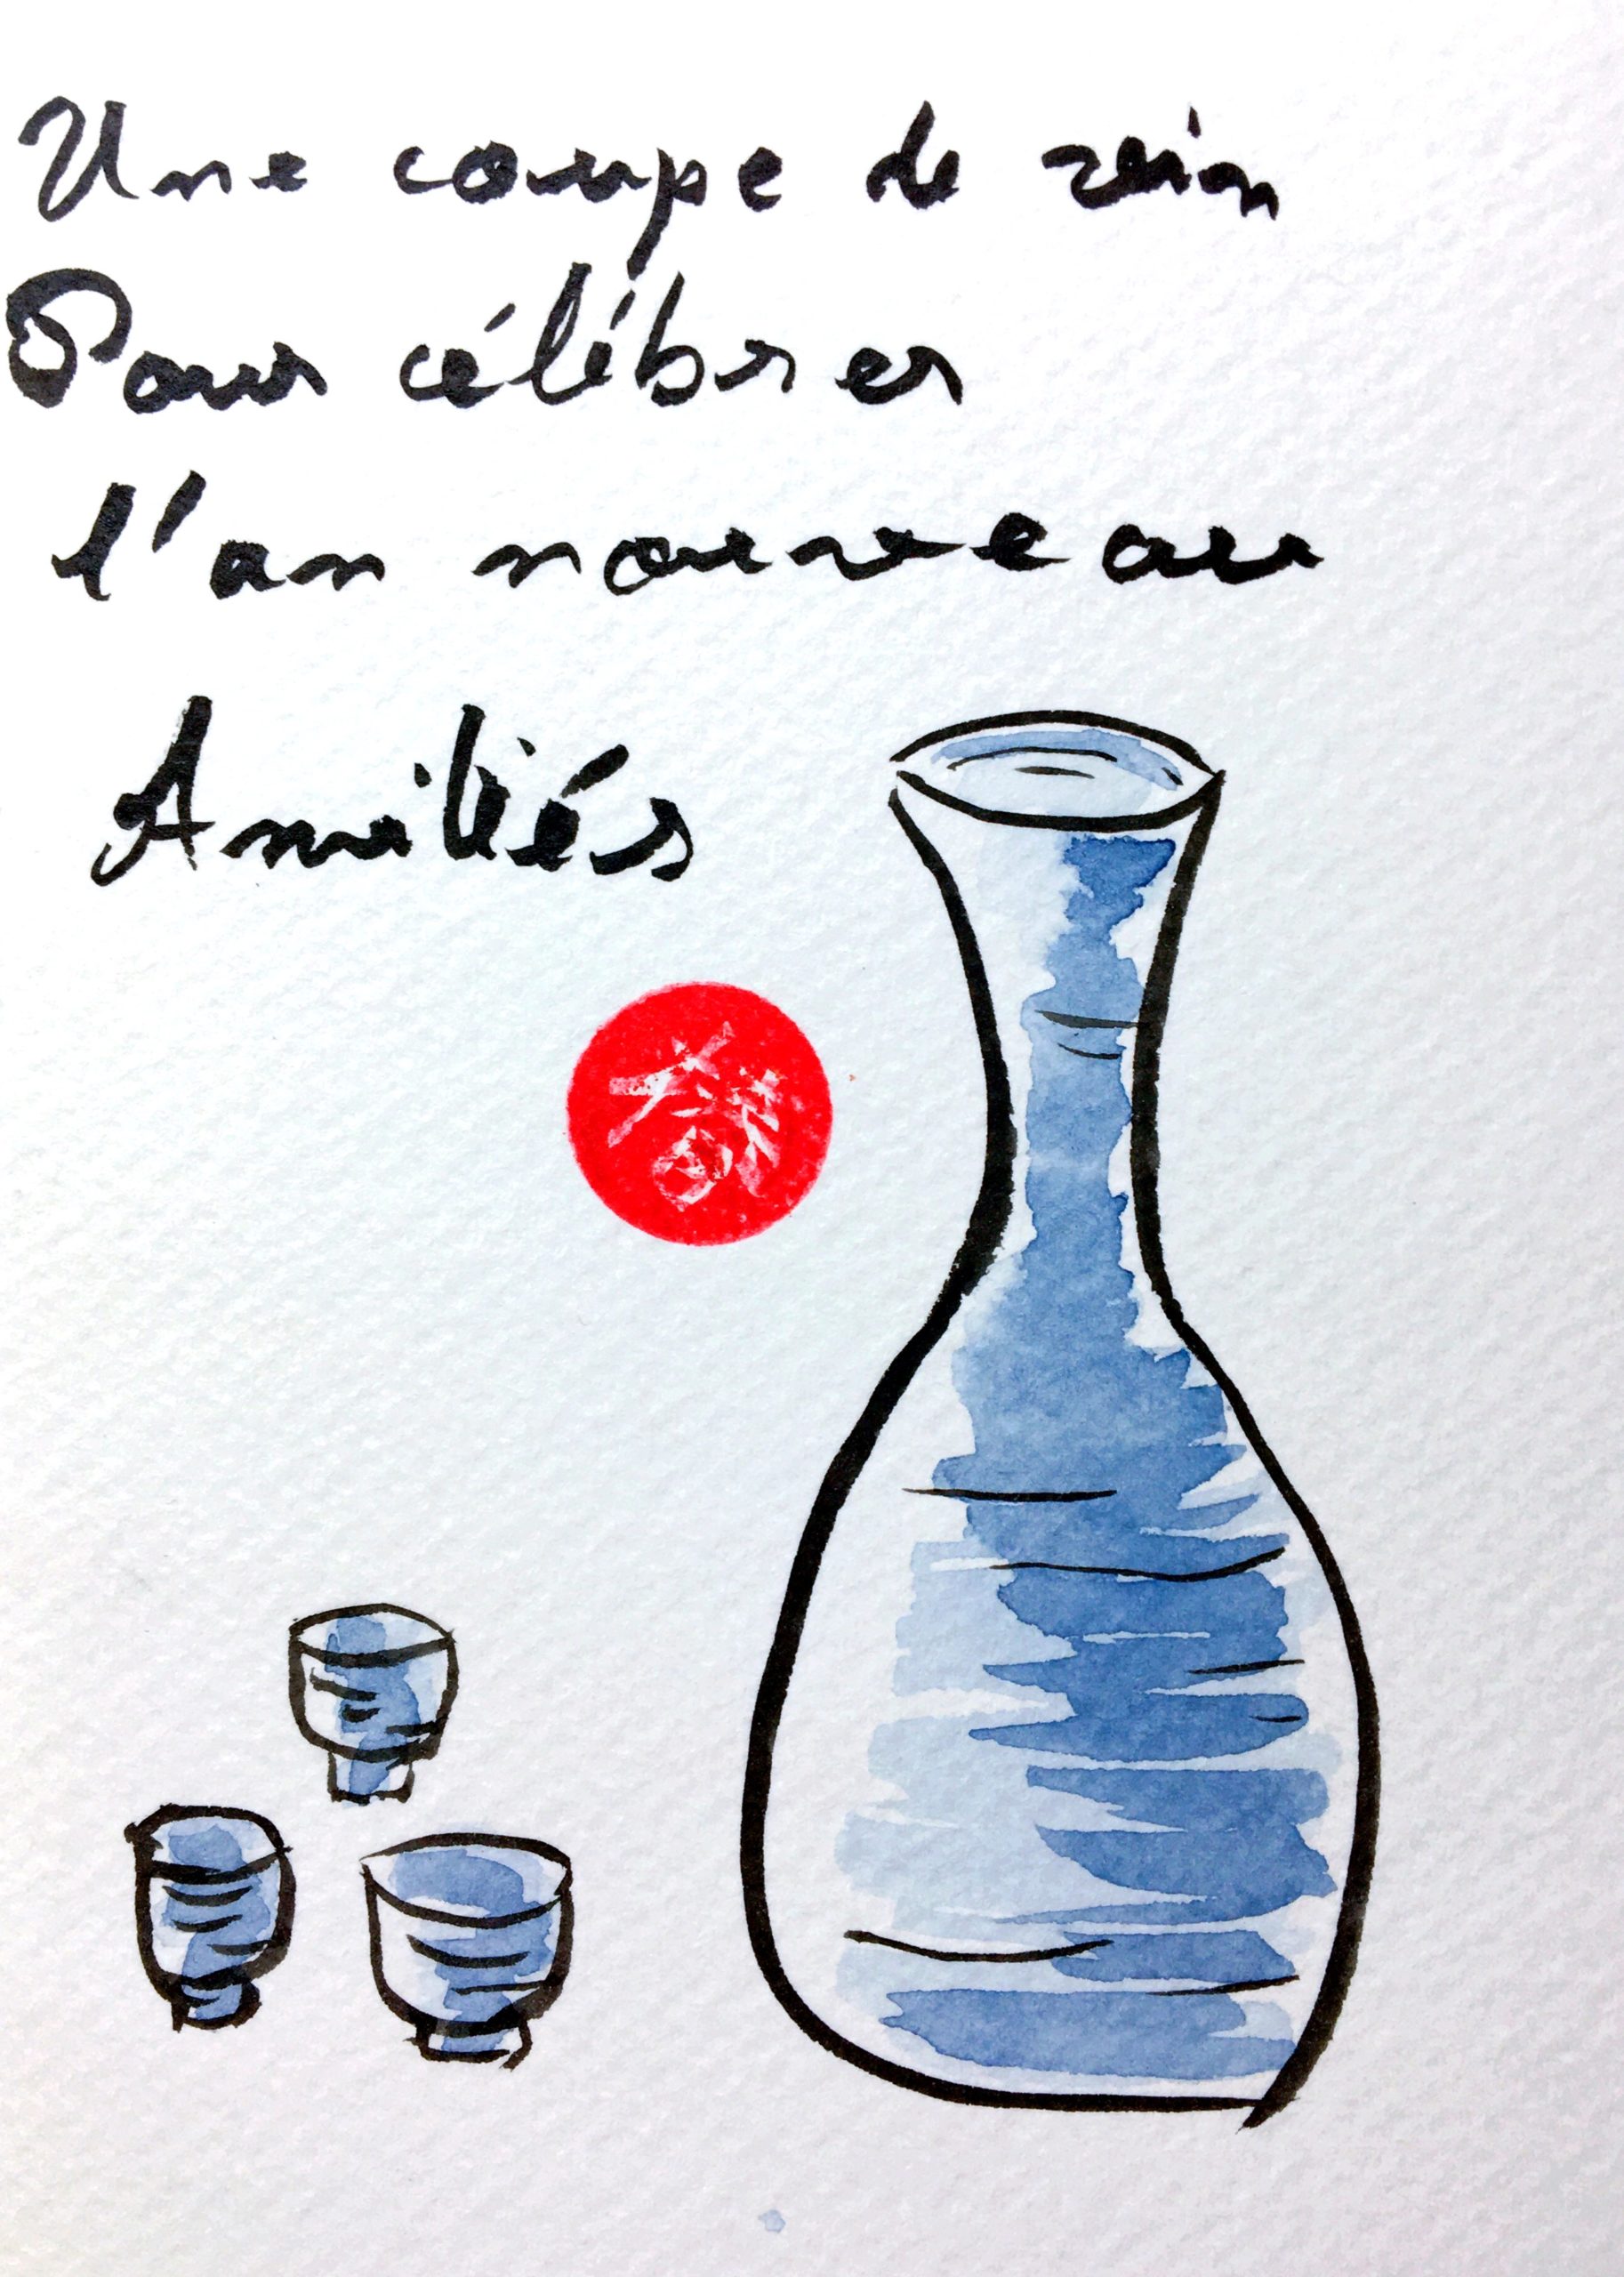 Une coupe de vin
Pour célébrer
l'an nouveau
Amitiés